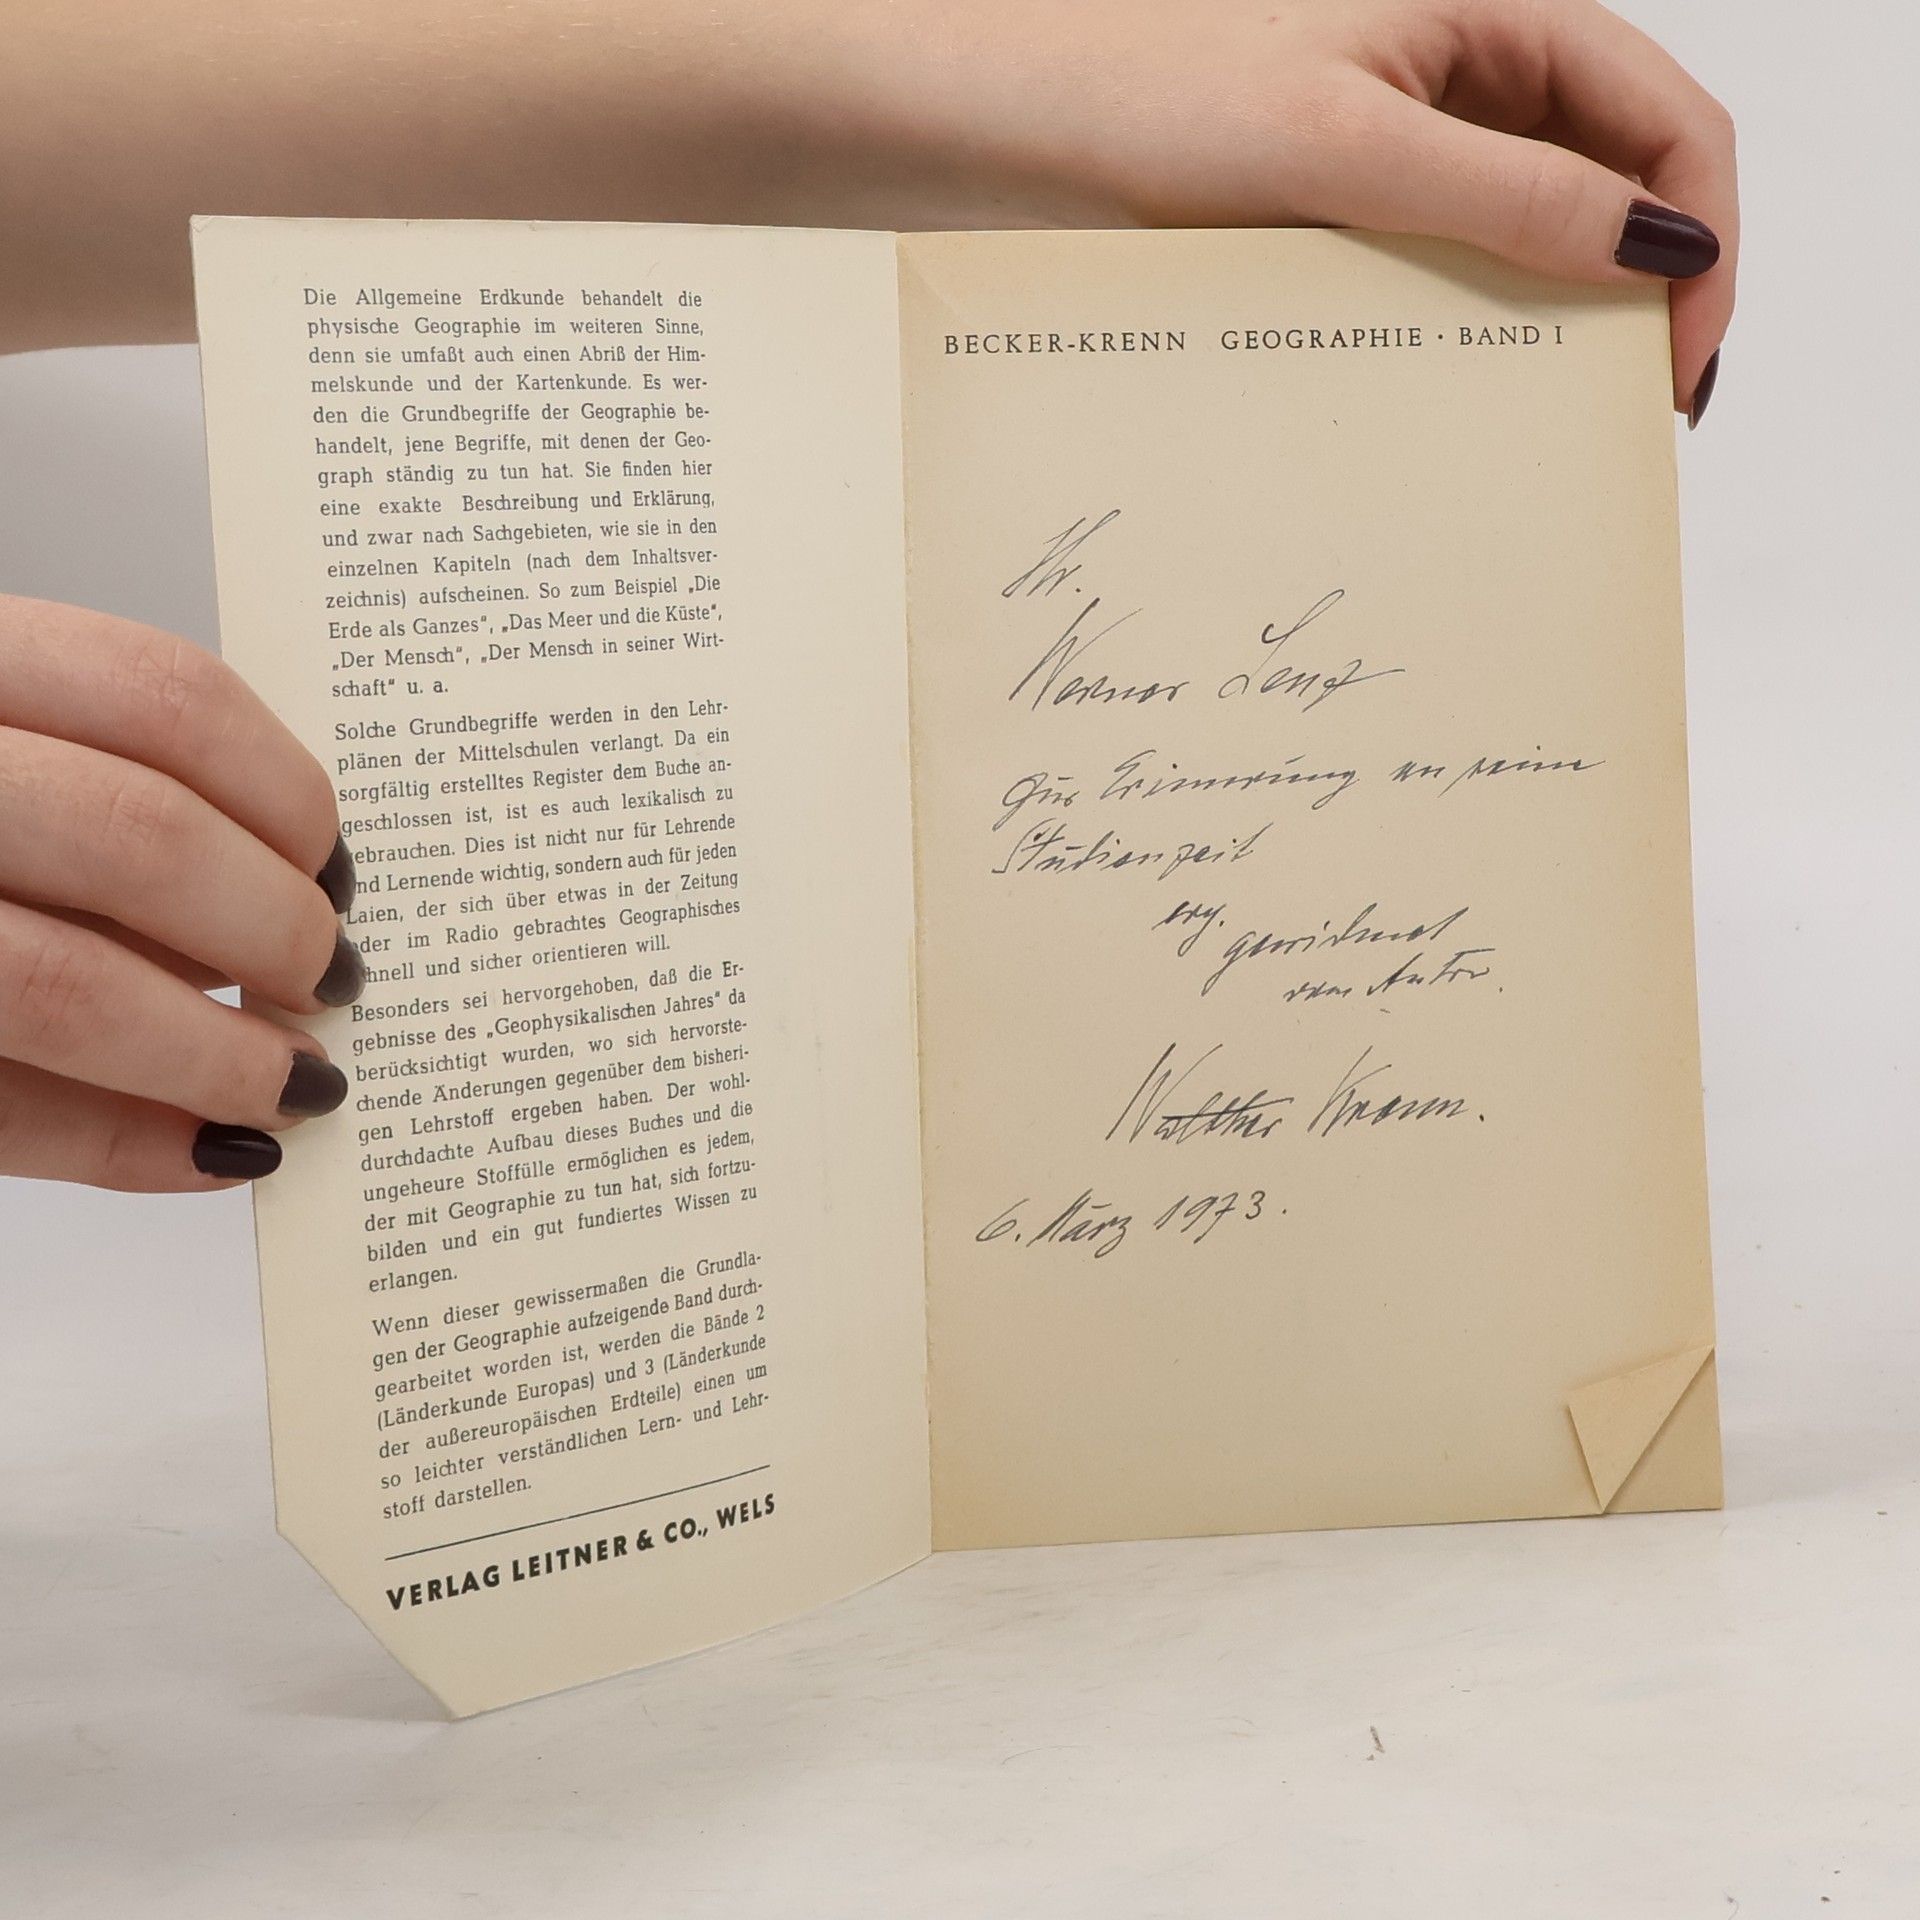 Die Allgemeine Erdkunde behandelt die
physische Geographie im weiteren Sinne,
denn sie umfaßt auch einen Abriß der Him-
melskunde und der Kartenkunde. Es wer-
den die Grundbegriffe der Geographie be-
handelt, jene Begriffe, mit denen der Geo-
graph ständig zu tun hat. Sie finden hier
eine exakte Beschreibung und Erklärung,
und zwar nach Sachgebieten, wie sie in den
einzelnen Kapiteln (nach dem Inhaltsver-
zeichnis) aufscheinen. So zum Beispiel „Die
Erde als Ganzes“, „Das Meer und die Küste“,
„Der Mensch“, „Der Mensch in seiner Wirt-
schaft“ u. a.
Solche Grundbegriffe werden in den Lehr-
plänen der Mittelschulen verlangt. Da ein
sorgfältig erstelltes Register dem Buche an-
geschlossen ist, ist es auch lexikalisch zu
ebrauchen. Dies ist nicht nur für Lehrende
nd Lernende wichtig, sondern auch für jeden
Laien, der sich über etwas in der Zeitung
oder im Radio gebrachtes Geographisches
hnell und sicher orientieren will.
Besonders sei hervorgehoben, daß die Er-
gebnisse des „Geophysikalischen Jahres“ da
berücksichtigt wurden, wo sich hervorste-
chende Änderungen gegenüber dem bisheri-
gen Lehrstoff ergeben haben. Der wohl-
durchdachte Aufbau dieses Buches und die
ungeheure Stoffülle ermöglichen es jedem,
der mit Geographie zu tun hat, sich fortzu-
bilden und ein gut fundiertes Wissen zu
erlangen.
Wenn dieser gewissermaßen die Grundla-
gen der Geographie aufzeigende Band durch-
gearbeitet worden ist, werden die Bände 2
(Länderkunde Europas) und 3 (Länderkunde
der außereuropäischen Erdteile) einen um
so leichter verständlichen Lern- und Lehr-
stoff darstellen.
VERLAG LEITNER & CO., WELS
BECKER-KRENN GEOGRAPHIE · BAND I
Hr.
Werner Lenz
Zur Erinnerung an seine
Studienzeit
erg. gewidmet
vom Autor.
Walther Krenn.
6. März 1973.